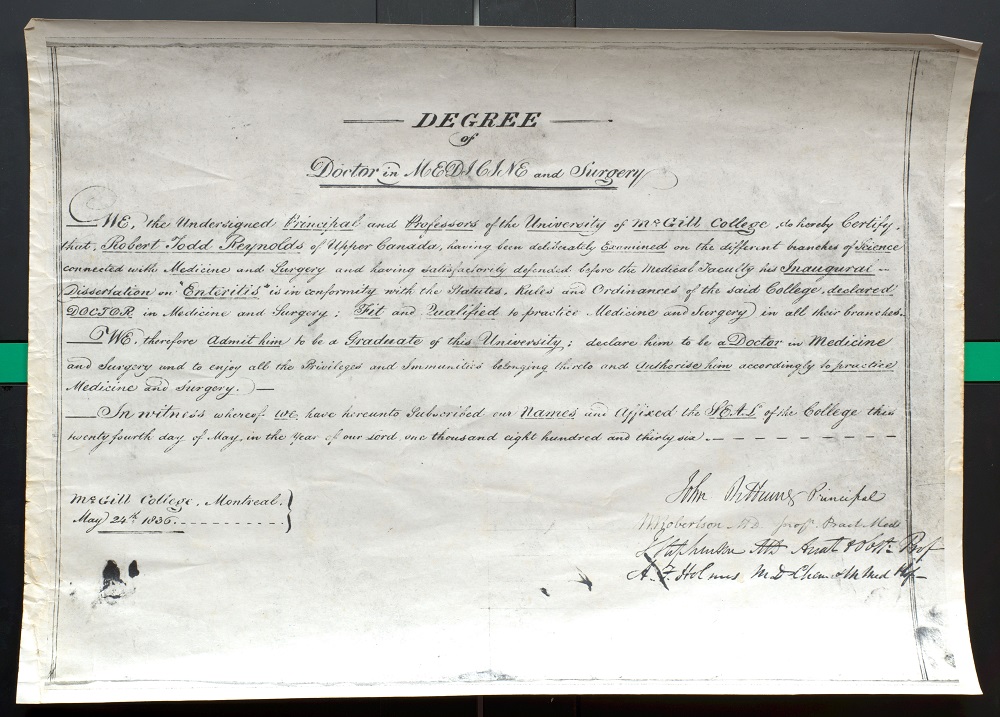 DEGREE
of
Doctor in MEDICINE and Surgery
WE, the Undersigned Principal and Professors of the University of McGill College, do hereby Certify,
that, Robert Todd Reynolds of Upper Canada, having been deliberately Examined on the different branches of Science
connected with Medicine and Surgery and having satisfactorily defended before the Medical Faculty his Inaugural –
Dissertation on "Enteritis" is in conformity with the Statutes, Rules and Ordinances of the said College, declared
DOCTOR, in Medicine and Surgery; Fit and Qualified to practice Medicine and Surgery in all their branches.
WE, therefore Admit him to be a Graduate of this University; declare him to be a Doctor in Medicine
and Surgery and to enjoy all the Privileges and Immunities belonging thereto and Authorise him accordingly to practice
Medicine and Surgery. —
In witness whereof we, have hereunto Subscribed our Names and Affixed the SEAL of the College this
twenty fourth day of May, in the Year of our Lord one thousand eight hundred and thirty six. – – – – – – – – –
McGill College, Montreal,
May 24th 1836. - - - - - - - - - - -
John Bethune Principal
W Robertson MD. prof. Pract Med
J Stephenson MD Anat & Obst. Prof
A. F. Holmes MD Chem & M Med Prof